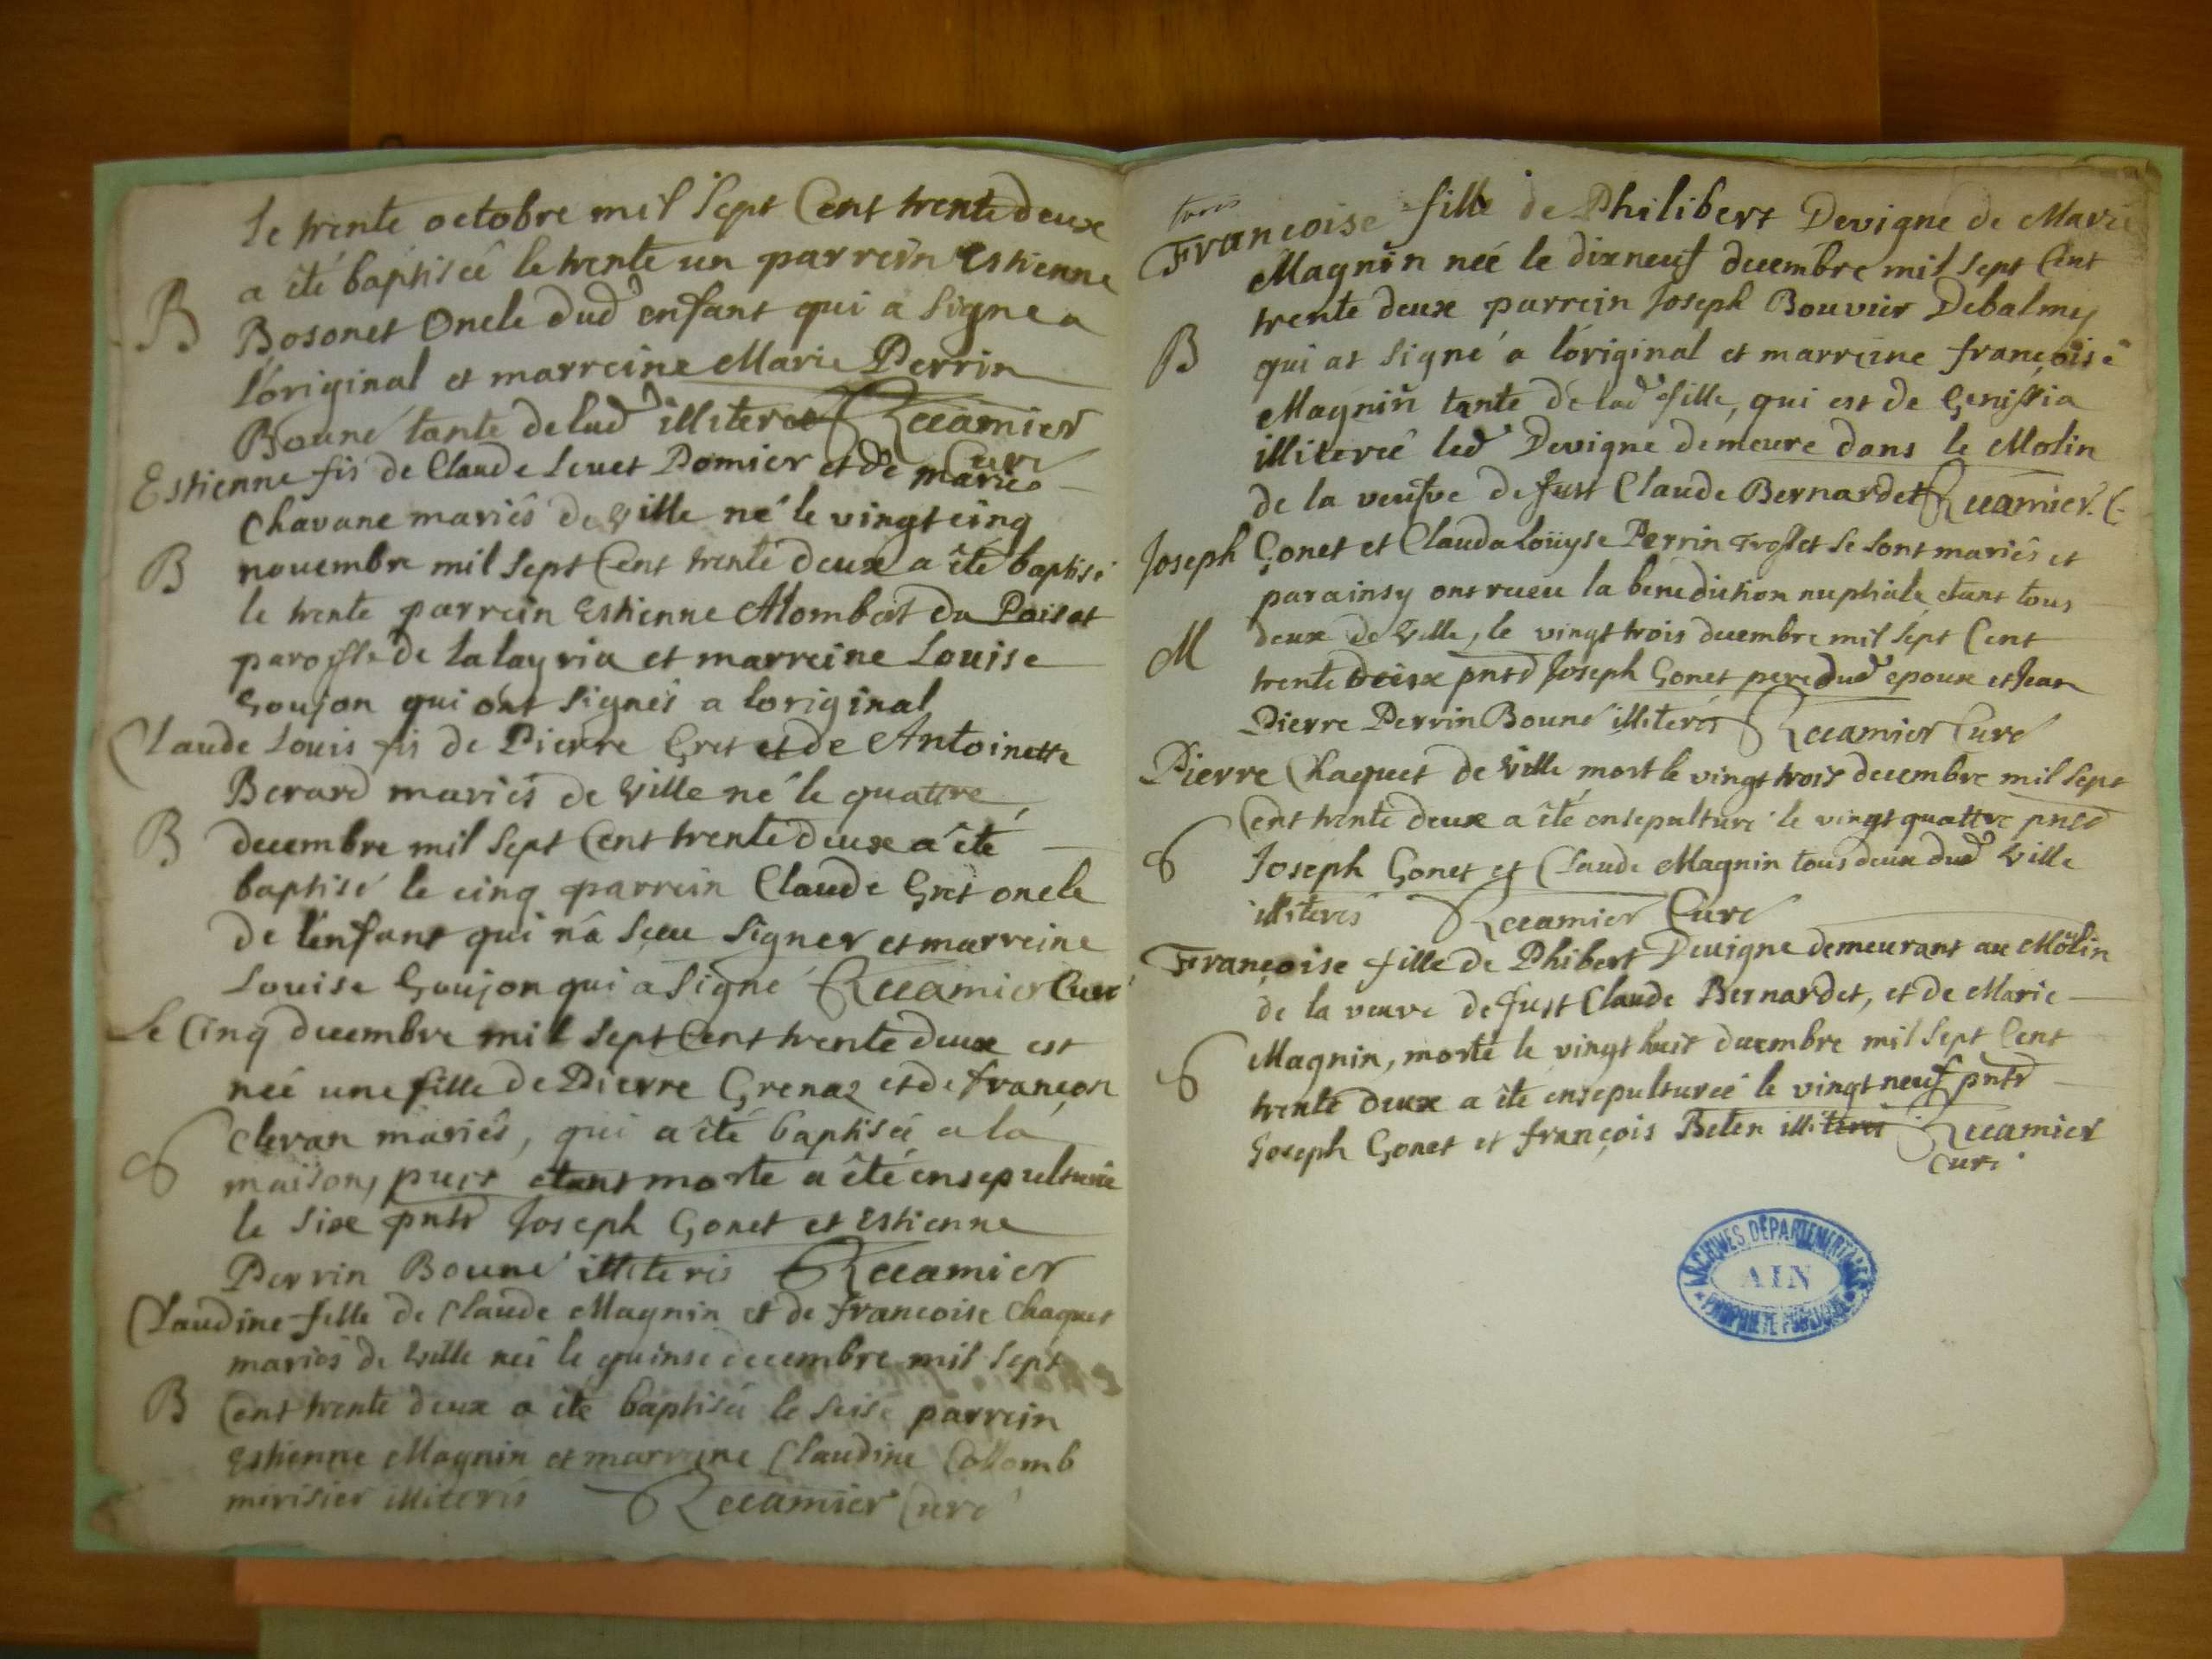 le trente octobre mil sept Cent trente deux
a été baptiseé le trente un parrein Estienne
B
Bosonet Oncle dud enfant qui a signe a
l'original et marreine Marie Perrin
Bouné tante de lad illiteres Recamier
Curé
Estienne fis de Claude Pomier et de marie
Chavane mariés de Ville né le vingt cinq
B
novembre mil sept Cent trente deux a été baptisé
le trente parrein Estienne du Poisat
paroisse de Lalayria et marreine Louise
Goujon qui ont signés a loriginal
Claude Louis fis de Pierre Gret et de Antoinette
Berard mariés de Ville né le quattre
B
decembre mil sept Cent trente deux a été
baptisé le cinq parrein Claude Gret oncle
de l'enfant qui n'a sceu signer et marreine
Louise Goujon qui a signé Recamier Curé
Le Cinq decembre mil sept Cent trente deux est
neé une fille de Pierre Grenaz et de françon
Clevan mariés, qui a été baptisée a la
S
maison, puis etant morte a été ensepulturée
le six pnts Joseph Gonet et Estienne
Perrin Bouné illiterés Recamier
Claudine fille de Claude Magnin et de francoise Chaquet
mariés de Ville neé le quinse decembre mil sept
B
Cent trente deux a été baptisée le seise parrein
Estienne Magnin et marreine Claudine Collomb
mirisier illiterés Recamier Curé
Françoise fille de Philibert Devigne de Marie
Magnin neé le dixneuf decembre mil sept Cent
trente deux parrein Joseph Bouvier Debalmey
B
qui at signé a l'original et marreine françoise
Magnin tante de lad fille, qui est de Genissia
illitereé led Devigne demeure dans le Molin
de la veufve de fust Claude Bernardet Recamier C.
Joseph Gonet et Clauda Loüyse Perrin se sont mariés et
par ainsy ont receu la benediction nuphiale etant tous
M
deux de Ville, le vingt trois decembre mil sept Cent
trente deux pnts Joseph Gonet pere dud epoux et Jean
Pierre Perrin Bouné illiterés Recamier Curé
Pierre Chaquet de Ville mort le vingt trois decembre mil sept
Cent trente deux a été ensepulturé le vingt quattre pnts
S
Joseph Gonet et Claude Magnin tous deux dud Ville
illiterés Recamier Curé
Françoise fille de Phibert Devigne demeurant au Moulin
de la veuve de fust Claude Bernardet, et de Marie
S
Magnin, morte le vingt huit decembre mil sept Cent
trente deux a été ensepultureé le vingt neuf pnts
Joseph Gonet et françois Beten illiterés Recamier
Curé
ARCHIVES DÉPARTEMENTALES
AIN
PROPRIÉTÉ PUBLIQUE